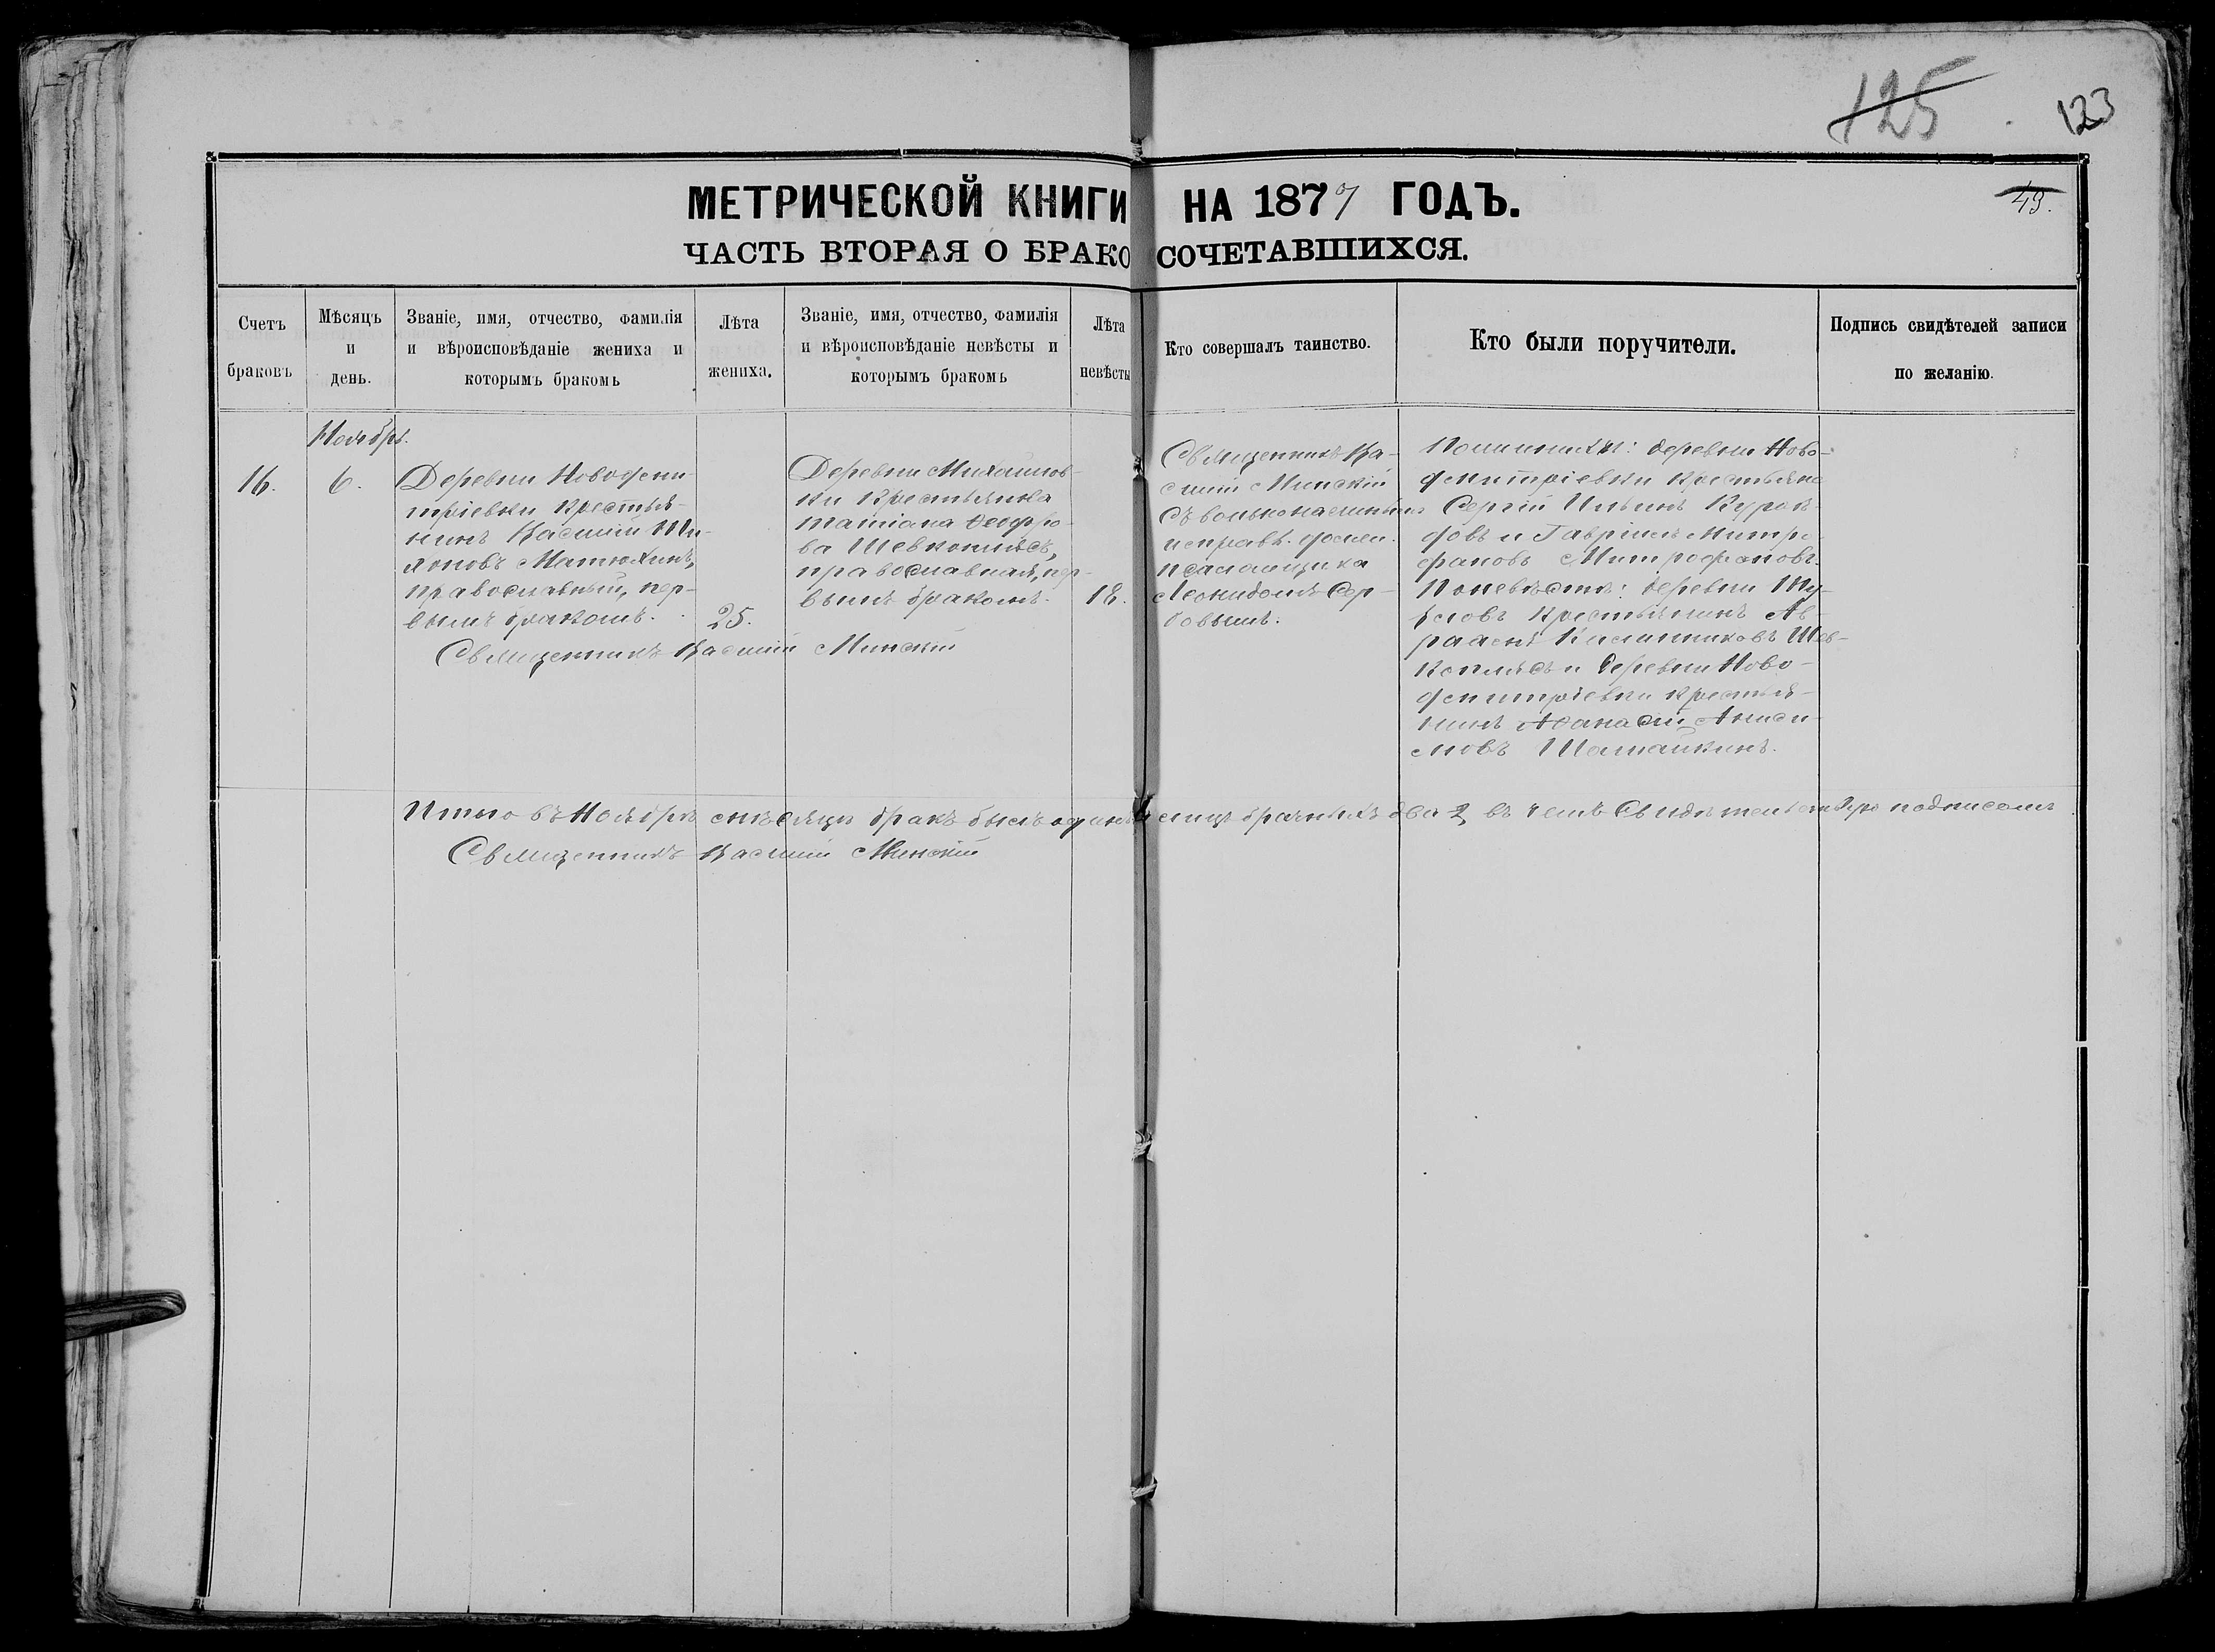 125
123
49.
МЕТРИЧЕСКОЙ КНИГИ НА 1877 ГОДЪ.
ЧАСТЬ ВТОРАЯ О БРАКОСОЧЕТАВШИХСЯ.
Счетъ
браковъ
Мѣсяцъ
и
день.
Званіе, имя, отчество, фамилія
и вѣроисповѣданіе жениха и
которымъ бракомъ
Лѣта
жениха.
Званіе, имя, отчество, фамилія
и вѣроисповѣданіе невѣсты и
которымъ бракомъ
Лѣта
невѣсты
Кто совершалъ таинство.
Кто были поручители.
Подпись свидѣтелей записи
по желанію.
Ноябрь.
16.
6.
Деревни Новодми-
тріевки крестья-
нинъ Василій
Матюхинъ,
православный, пер-
вымъ бракомъ.
25.
Деревни Михайлов-
ки крестьянка
Татіана Ѳеодоро-
ва Шевкоплясъ,
православная, пер-
вымъ бракомъ.
18.
Священникъ Ва-
силій Минскій
съ вольнонаемнымъ
исправл. должн.
псаломщика
Леонидомъ Сер-
бовымъ.
По женихѣ: деревни Ново-
дмитріевки крестьяне
Сергій Ильинъ
и Гавріилъ Митро-
фановъ Митрофановъ.
По невѣстѣ: деревни
крестьянинъ Ав-
раамъ Шев-
коплясъ и деревни Ново-
дмитріевки крестья-
нинъ Аѳанасій Аниси-
мовъ Шатайкинъ.
Священникъ Василій Минскій
Итого въ Ноябрѣ мѣсяцѣ бракъ былъ одинъ 1 лицъ брачныхъ два 2, въ чемъ свидѣтельствую подписомъ
Священникъ Василій Минскій